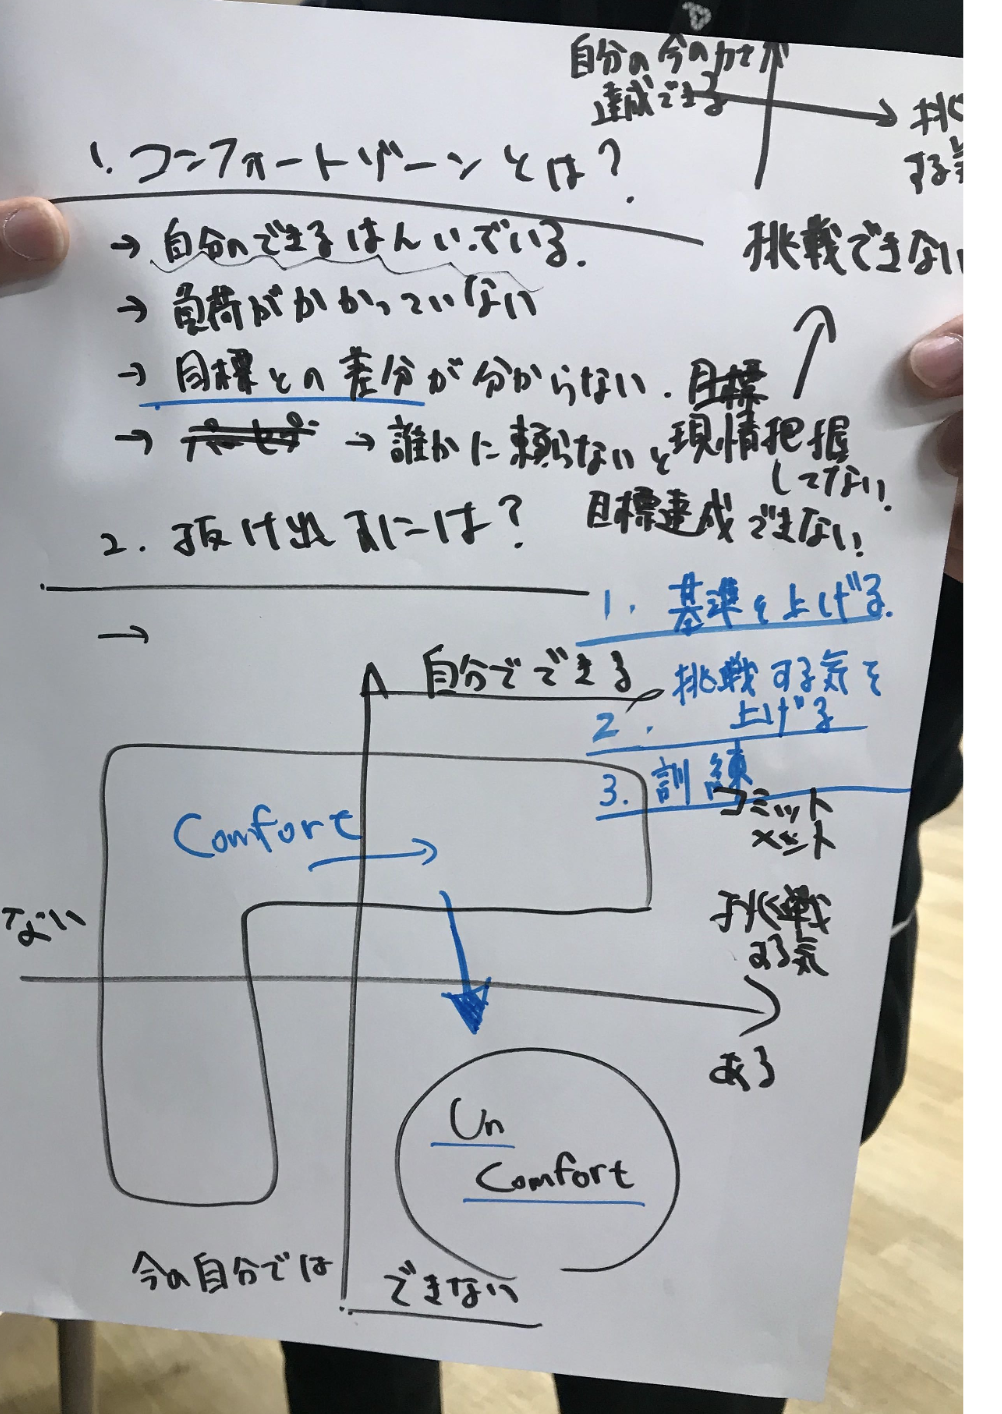 自分の今の力で
達成できる
挑
する気
1. コンフォートゾーンとは?
→ 自分のできるはんいでいる.
→ 負荷がかかっていない
→ 目標との差分が分からない.
→ → 誰かに頼らないと
挑戦できない
目標
現情把握
してない!
目標達成できない!
2. 抜け出すには?
→
1. 基準を上げる.
2. 挑戦する気を
上げる
3. 訓練
自分でできる
コミット
メント
挑戦
する気
ない
ある
Comfort
Un
Comfort
今の自分では
できない